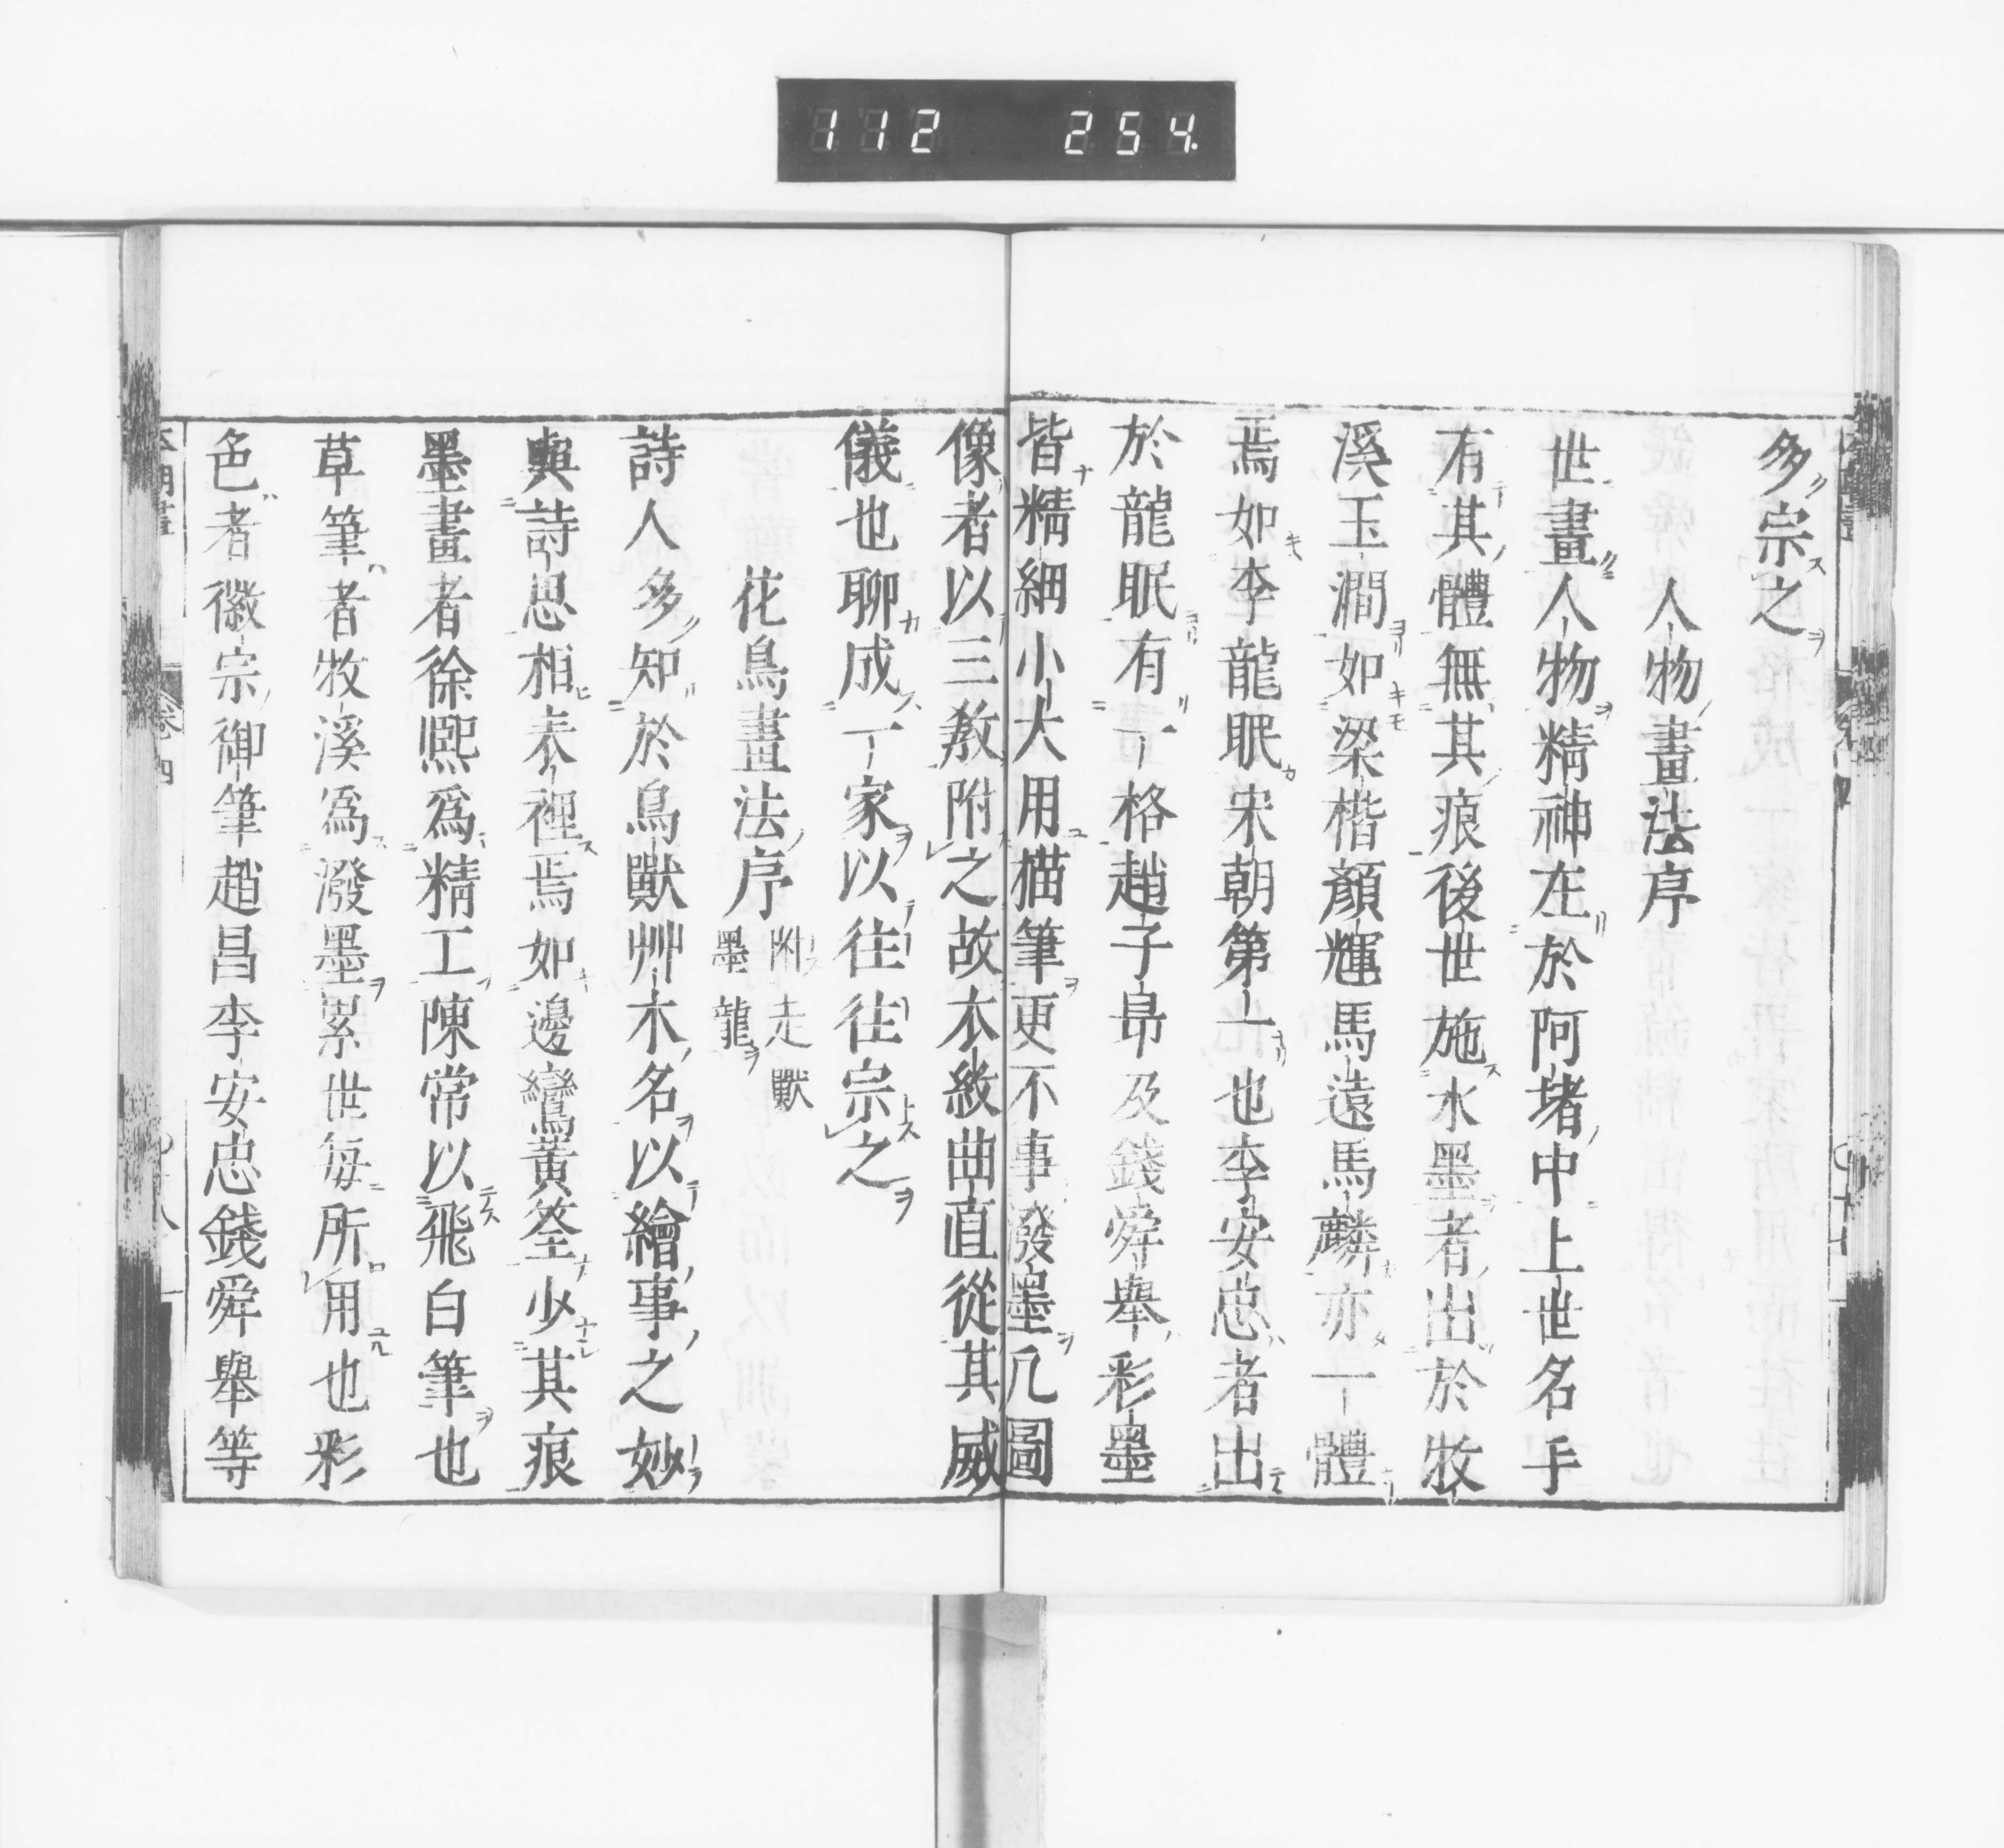 112 254
多宗之
人物畫法序
世畫人物精神在於阿堵中上世名手
有其體無其痕後世施水墨者出於牧
溪玉澗如梁楷顏輝馬遠馬麟亦一體
焉如李龍眠宋朝第一也李安忠者出
於龍眠有一格趙子昂及錢舜舉彩墨
皆精細小大用描筆更不事潑墨凡圖
像者以三教附之故衣紋曲直從其威
儀也聊成一家以往往宗之
花鳥畫法序 附走獸墨龍
詩人多知於鳥獸艸木名以繪事之妙
與詩思相表裡焉如邊鸞黃筌少其痕
墨畫者徐熙爲精工陳常以飛白筆也
草筆者牧溪爲潑墨累世每所用也彩
色者徽宗御筆趙昌李安忠錢舜舉等